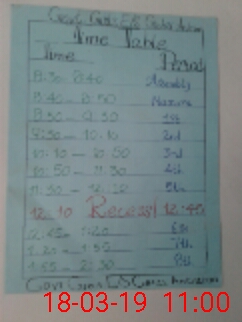 Time Table
Time Period
8:30 8:40 Assembly
8:40 - 8:50 Nazira
8:50 - 9:30 1st
9:30 - 10:10 2nd
10:10 - 10:50 3rd
10:50 - 11:30 4th
11:30 - 12:10 5th
12:10 Recess! 12:45
12:45 - 1:20 6th
1:20 - 1:55 7th
1:55 - 2:30 8th
18-03-19 11:00